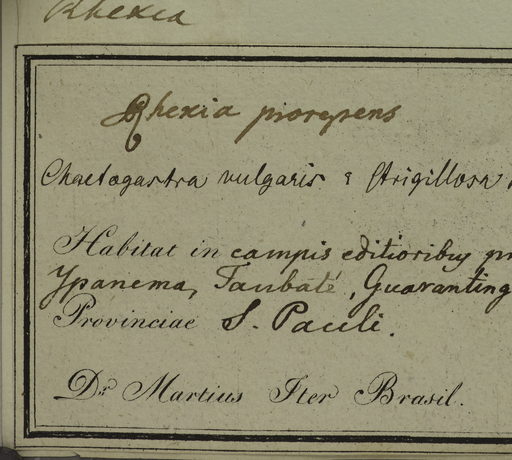 Rhexia
Rhexia prorepens
Chaetogastra vulgaris strigillosa
Habitat in campis editioribus
Ypanema, Taubaté, Guaranting
Provinciae S. Pauli.
Dr Martius Iter Brasil.